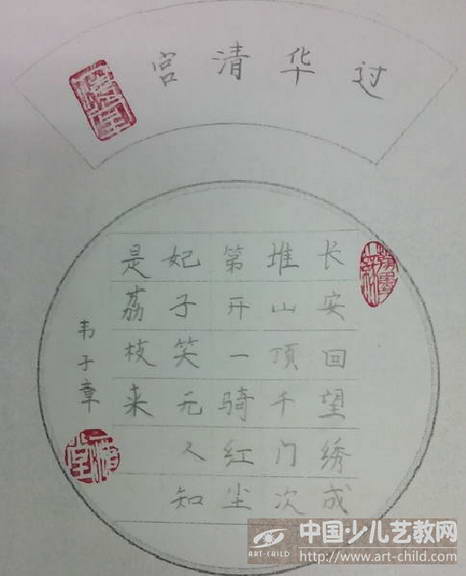 过华清宫
长安回望绣成
堆山顶千门次
第开一骑红尘
妃子笑无人知
是荔枝来
韦子章
ART-CHILD
中国·少儿艺教网
http://www.art-child.com